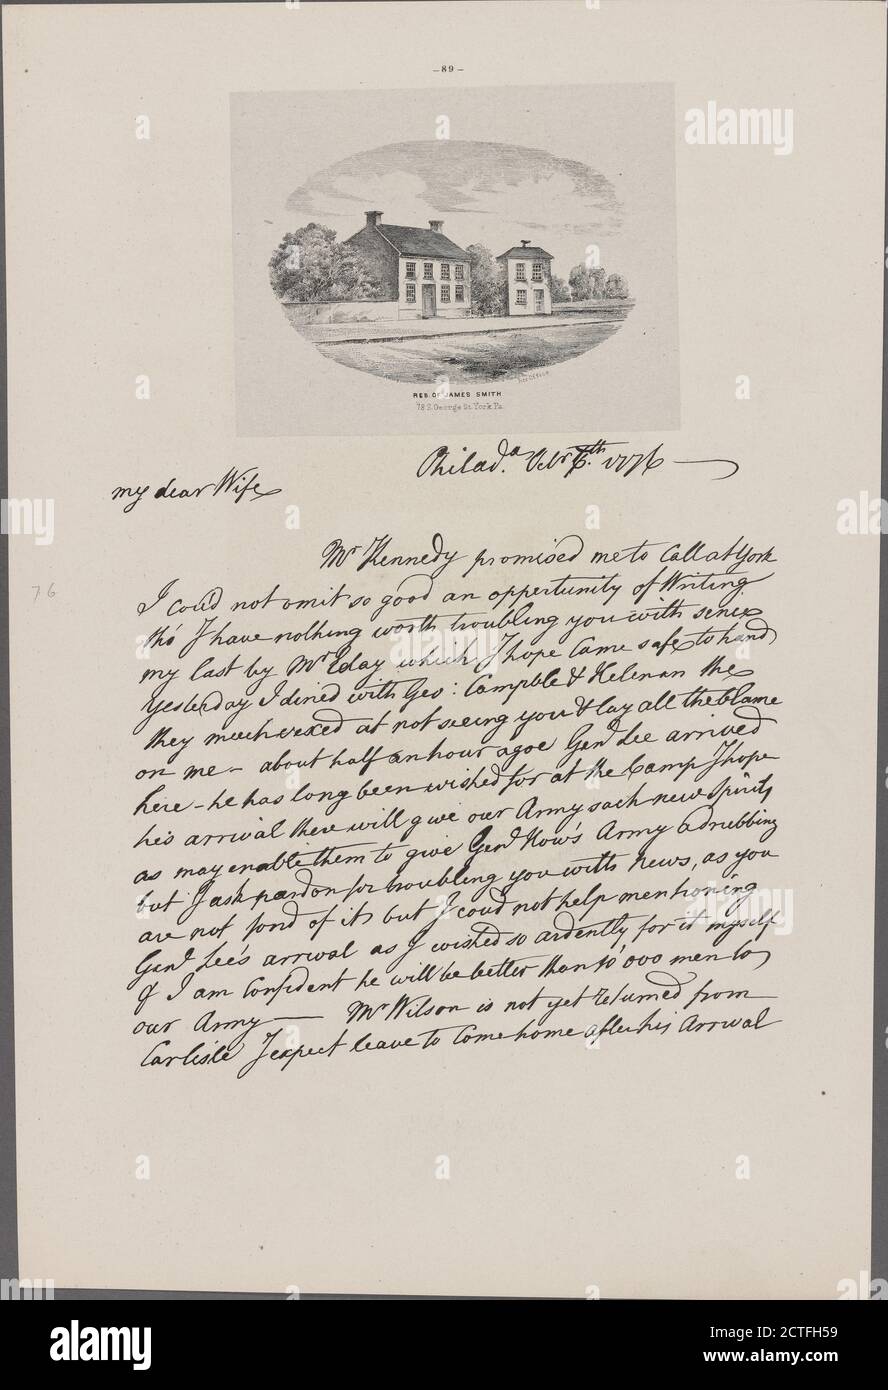 -89-
RES. OF JAMES SMITH
78 S. George St. York Pa.
Philada. 1776
my dear Wife
Mr Kennedy promised me to Call at York
I coud not omit so good an oppertunity of Writing
tho' I have nothing worth troubling you with since
my last by Mr which I hope Came safe to hand
Yesterday I dined with Geo: Campble &
they much vexed at not seeing you & lay all the blame
on me – about half an hour agoe Genl Lee arrived
here – he has long been wished for at the Camp I hope
his arrival there will give our Army such new Spirits
as may enable them to give Genl How's Army a drubbing
but I ask pardon for troubling you with news, as you
are not fond of it but I coud not help mentioning
Genl Lee's arrival as I wished so ardently for it myself
& I am Confident he will be better than 10'000 men to
our Army — Mr Wilson is not yet returned from
Carlisle I expect leave to Come home after his Arrival
76
alamy
a
Image ID: 2CTFH59
www.alamy.com